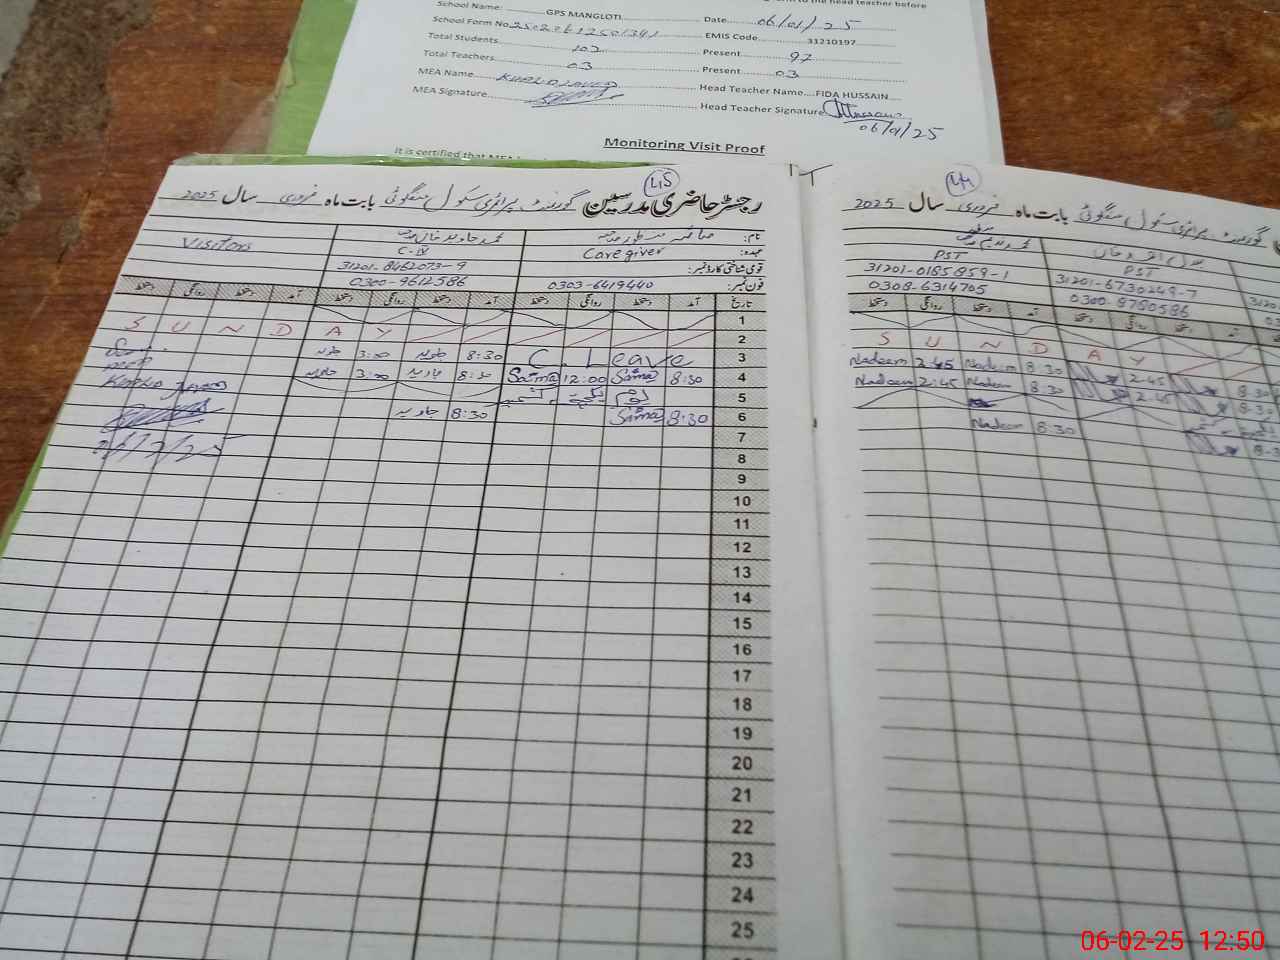 to the head teacher before
School Name: GPS MANGLOTI Date 06/01/25
School Form No. EMIS Code 31210197
Total Students 102 Present 97
Total Teachers 03 Present 03
MEA Name KHALD JAVED Head Teacher Name FIDA HUSSAIN
MEA Signature Head Teacher Signature
06/01/25
Monitoring Visit Proof
It is certified that MEA
45
رجسٹر حاضری مدرسین گورنمنٹ پرائمری سکول منگلوٹی بابت ماہ فروری سال 2025
نام: صائمہ منظور
عہدہ: Caregiver C-IV Visitors
قومی شناختی کارڈ نمبر: 31201-8462073-9
فون نمبر: 0303-6419440 0300-9612586
تاریخ آمد دستخط روانگی دستخط آمد دستخط روانگی دستخط آمد دستخط روانگی دستخط
1
S U N D A Y 2
3:00 8:30 C. Leave 3
3:00 8:30 Saima 12:00 Saima 8:30 4
KHALD JAVED 5
جاوید 8:30 Saima 8:30 6
6/2/25 7
8
9
10
11
12
13
14
15
16
17
18
19
20
21
22
23
24
25
44
گورنمنٹ پرائمری سکول منگلوٹی بابت ماہ فروری سال 2025
PST PST
31201-0185859-1 31201-6730249-7
0308-6314705 0300-8780586
دستخط روانگی دستخط آمد دستخط روانگی دستخط آمد
S U N D A Y
Nadeem 2:45 Nadeem 8:30 2:45 8:30
Nadeem 2:45 Nadeem 8:30 2:45 8:30
Nadeem 8:30 8:3
06-02-25 12:50